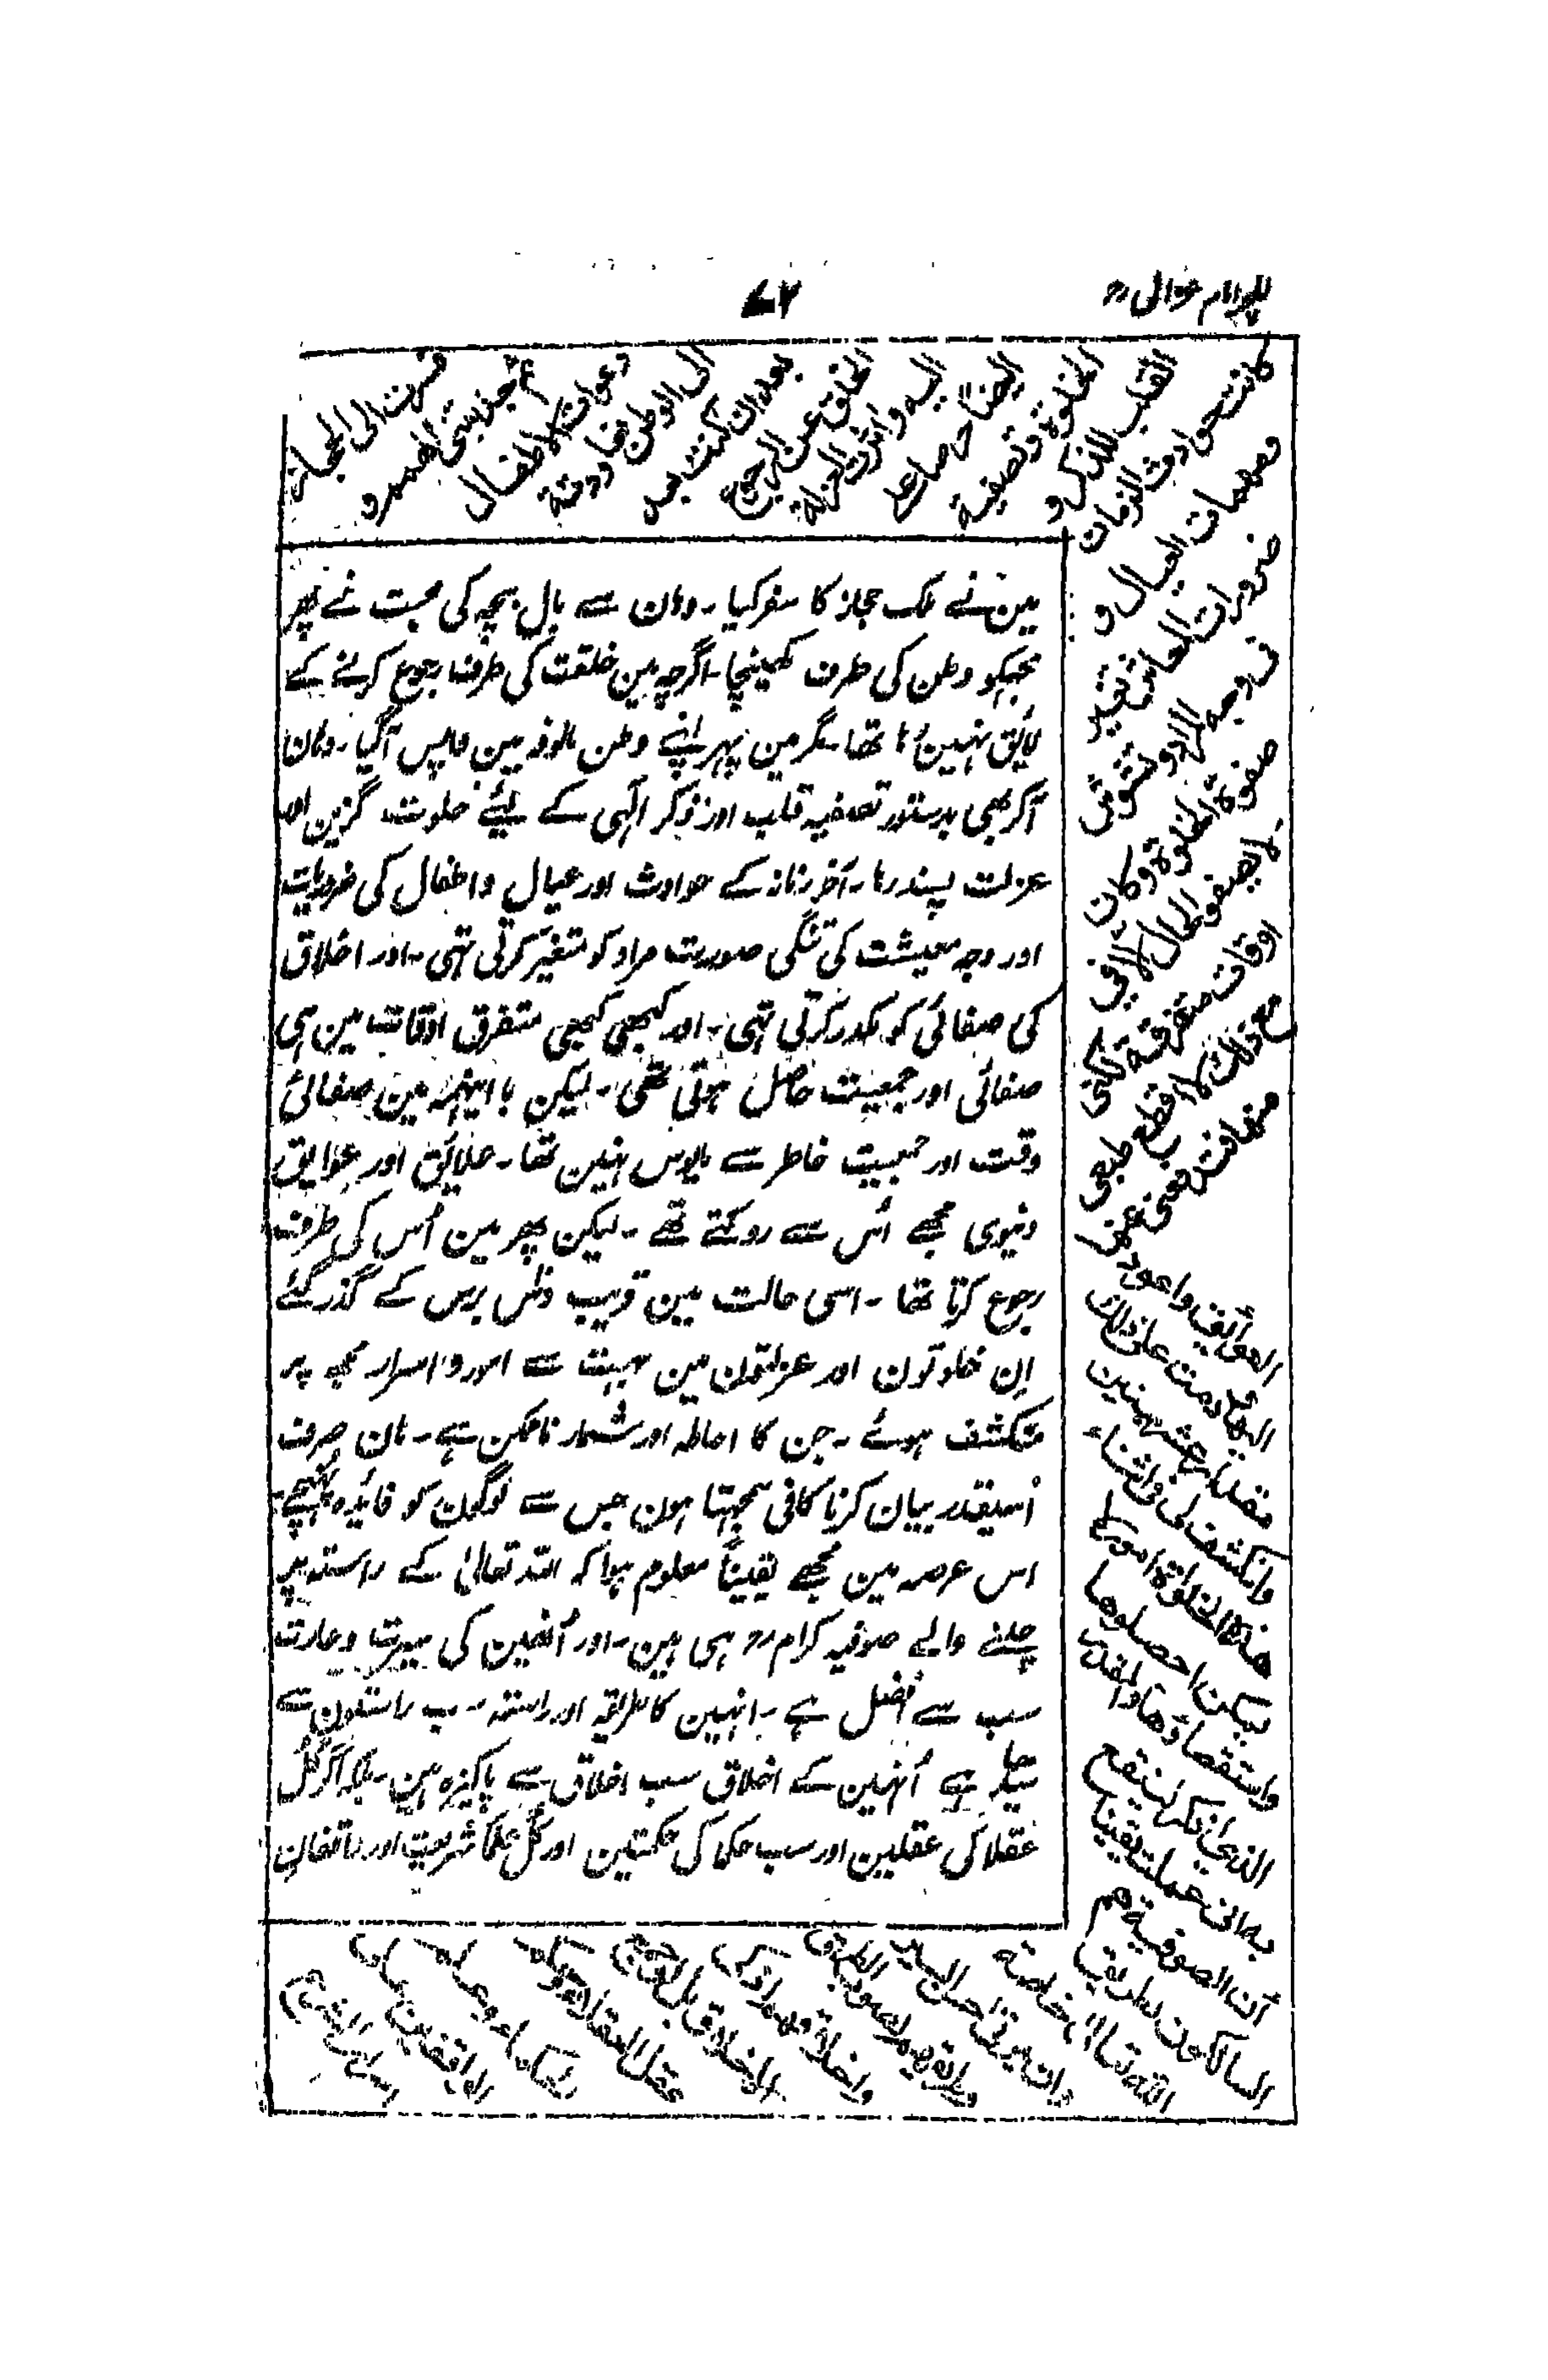 ۷۲
فسرت الى الحجاز
ثم جذبتنى الهمم و
دعوات الاطفال
الى الوطن فعاودته
بعد ان كنت ابعد
الخلق عن الرجوع
اليه واثرت العزلة
ايضا حرصا على
الخلوة وتصفية
القلب للذكر و
كانت حوادث الزمان
ومهمات العيال و
ضرورات المعاش تغير
فى وجه المراد وتشوش
صفوة الخلوة وكان
لا يصفو الحال الا فى
اوقات متفرقة لكنى
مع ذلك لا اقطع طمعى
منها فتدفعنى عنها
العوائق واعود
اليها ودمت على ذلك
مقدار عشر سنين
وانكشف لى فى اثناء
هذه الخلوة امور لا
يمكن احصاؤها
واستقصاؤها والقدر
الذى اذكره لينتفع
به انى علمت يقينا
أن الصوفية هم
السالكون لطريق
الله تعالى خاصة
وان سيرتهم احسن السير
وطريقهم اصوب الطرق
واخلاقهم ازكى
الاخلاق بل لو جمع
عقل العقلاء وحكمة
الحكماء وعلم
الواقفين على
اسرار الشرع
مین نے ملک حجاز کا سفر کیا ۔ وہان سے بال بچہ کی محبت نے پھر
مجہکو وطن کی طرف کھینچا ۔ اگرچہ مین خلقت کی طرف رجوع کرنے کے
لایٔق نہین رہا تھا ۔ مگر مین پہر اپنے وطن مالوفہ مین واپس آگیا ۔ وہان
آکر بھی بدستور تصفیہ قلب اور ذکر الٰہی کے لیئے خلوت گزین اور
عزلت پسند رہا ۔ آخر زمانہ کے حوادث اور عیال و اطفال کی ضروریات
اور وجہ معیشت کی تنگی صورت مراد کو متغیّر کرتی تہی ۔ اور اخلاق
کی صفائی کو مکدر کرتی تہی ۔ اور کبھی کبھی متفرق اوقات مین ہی
صفائی اور جمعیت حاصل ہوتی تھی ۔ لیکن با اینہمہ مین صفائی
وقت اور جمعیت خاطر سے مایوس نہین تھا ۔ علایٔق اور عوایق
دنیوی مجھے اُس سے روکتے تھے ۔ لیکن پھر مین اُس کی طرف
رجوع کرتا تھا ۔ اسی حالت مین قریب دنل برس کے گذر گئے
اِن خلوتون اور عزلتون مین بہت سے امور و اسرار مجہ پر
منکشف ہوئے ۔ جن کا احاطہ اور شمار ناممکن ہے ۔ ہان صرف
اُسیقدر بیان کرنا کافی سمجہتا ہون جس سے لوگون کو فایٔدہ پہنچے ۔
اس عرصہ مین مجھے یقیناً معلوم ہوا کہ اللہ تعالیٰ کے راستہ پر
چلنے والے صوفیہ کرام رح ہی ہین ۔ اور اُنھین کی سیرت و عادت
سب سے افضل ہے ۔ انہین کا طریقہ اور راستہ سب راستون سے
سیدہا ہے اُنہین کے اخلاق سب اخلاق سے پاکیزہ ہین ۔ بلکہ اگر کل
عقلا کی عقلین اور سب حکما کی حکمتین اور کل علما شریعت اور واقفان